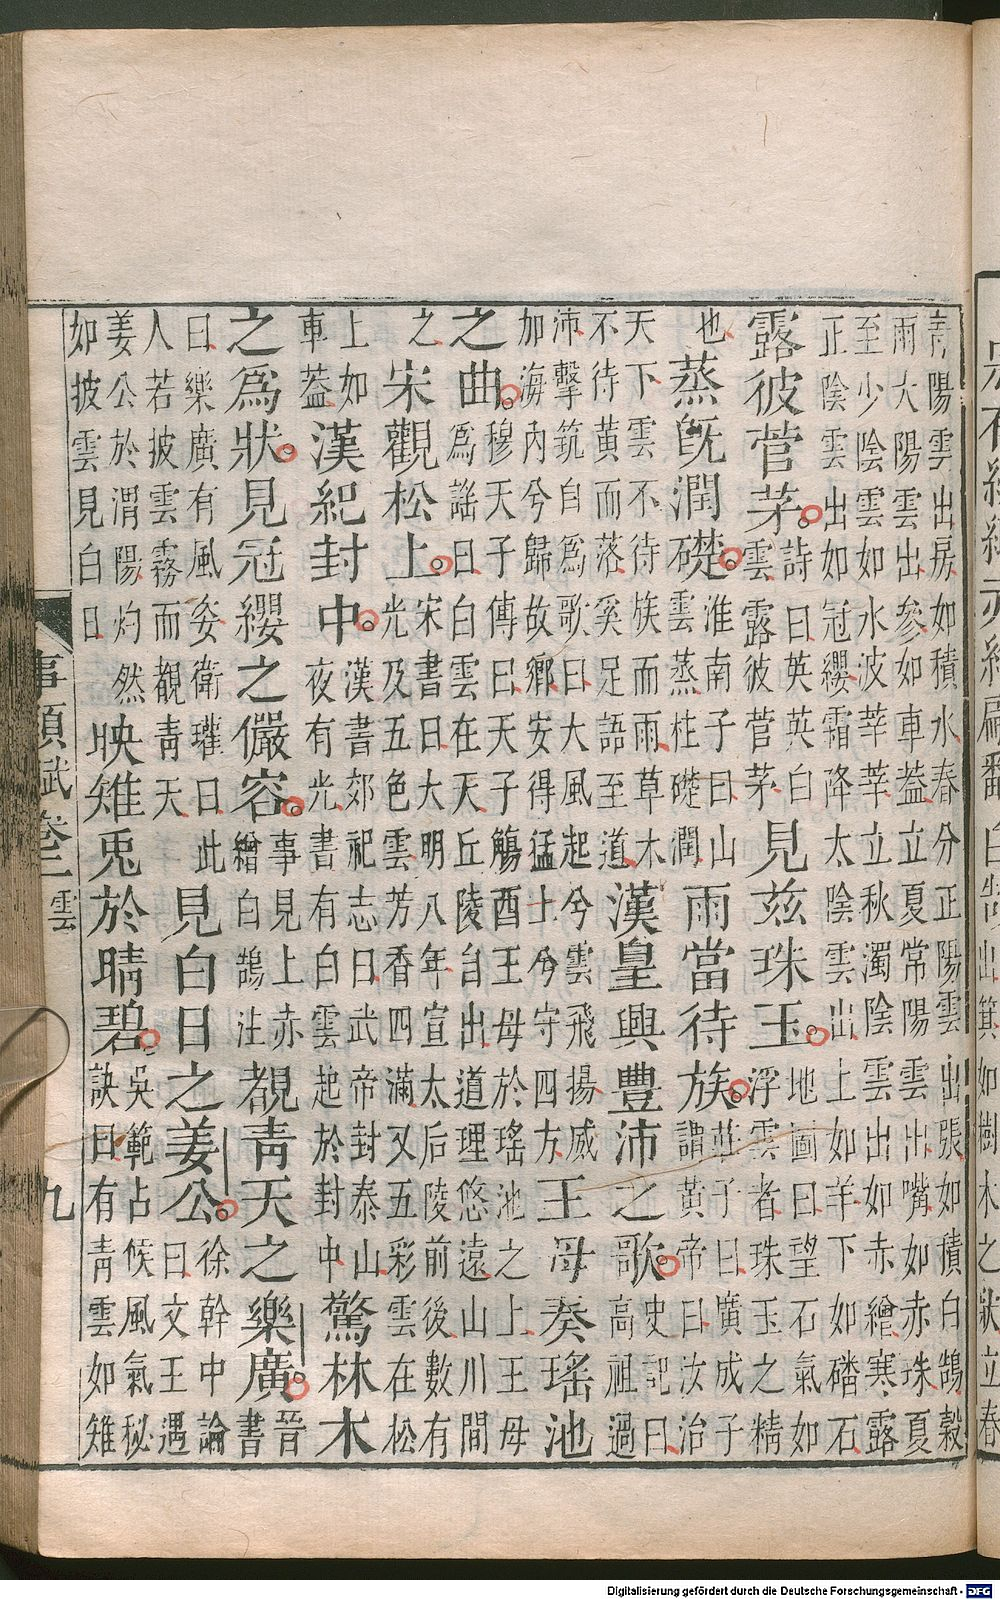 如樹木之狀立春
青陽雲出房如積水春分正陽雲出張如積白鵠穀
雨大陽雲出參如車蓋立夏常陽雲出嘴如赤珠夏
至少陰雲如水波莘莘立秋濁陰雲出如赤繒寒露
正陰雲出如冠纓霜降太陰雲出上如羊下如磻石
露彼菅茅。詩曰英英白雲露彼菅茅見茲珠玉。地圖曰望石氣如浮雲者珠玉之精
也蒸旣潤礎。淮南子曰山雲蒸柱礎潤雨當待族。莊子曰廣成子謂黃帝曰汝治
天下雲不待族而雨草木不待黃而落奚足語至道漢皇興豐沛之歌。史記曰高祖過
沛擊筑自爲歌曰大風起兮雲飛揚威加海內兮歸故鄉安得猛士兮守四方王母奏瑤池
之曲。穆天子傳曰天子觴酉王母於瑤池之上王母爲謠曰白雲在天丘陵自出道理悠遠山川間
之宋觀松上。宋書曰大明八年宣太后陵前後數有光及五色雲芳香四滿又五彩雲在松
上如車蓋漢紀封中。漢書郊祀志曰武帝封泰山夜有光書有白雲起於封中驚林木
之爲狀。見冠纓之儼容。事見上赤繒白鵠注覩青天之樂廣。晉書
曰樂廣有風姿衛瓘曰此人若披雲霧而覩青天見白日之姜公。徐幹中論曰文王遇
姜公於渭陽灼然如披雲見白日映雉兎於晴碧。吳範占候風氣秘訣曰有青雲如雉
事類賦卷二 雲 九
Digitalisierung gefördert durch die Deutsche Forschungsgemeinschaft - DFG